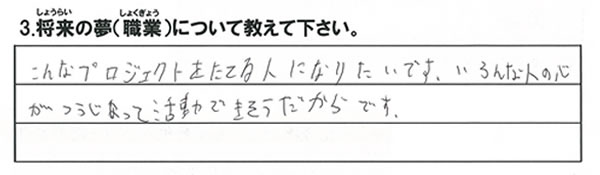 しょうらい しょくぎょう
3.将来の夢(職業)について教えて下さい。
こんなプロジェクトをたてる人になりたいです。いろんな人の心
がつうじあって活動できそうだからです。